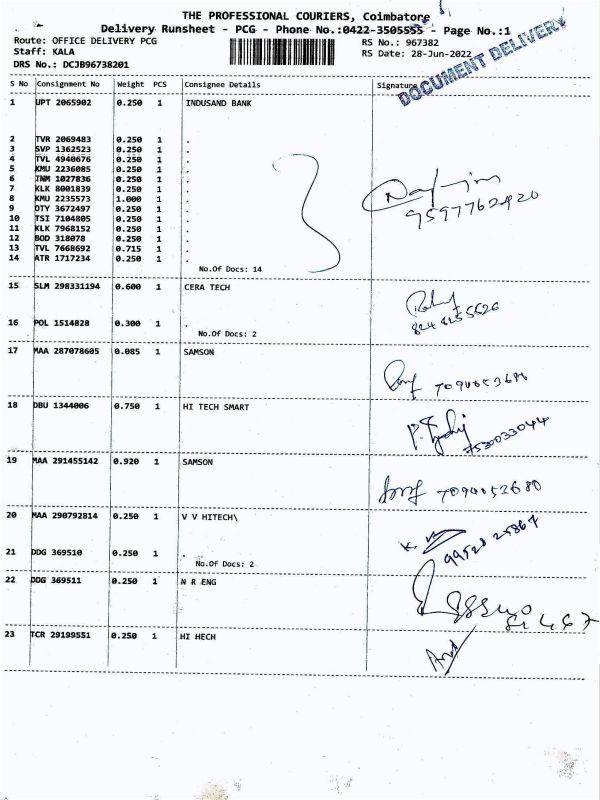 THE PROFESSIONAL COURIERS, Coimbatore
Delivery Runsheet - PCG - Phone No.:0422-3505555 - Page No.:1
Route: OFFICE DELIVERY PCG
RS No.: 967382
Staff: KALA
RS Date: 28-Jun-2022
DRS No.: DCJB96738201
DOCUMENT DELIVERY
S No Consignment No Weight PCS Consignee Details Signature
1 UPT 2065902 0.250 1 INDUSAND BANK
2 TVR 2069483 0.250 1 .
3 SVP 1362523 0.250 1 .
4 TVL 4940676 0.250 1 .
5 KMU 2236085 0.250 1 .
6 TNM 1027836 0.250 1 .
7 KLK 8001839 0.250 1 .
8 KMU 2235573 1.000 1 .
9 DTY 3672497 0.250 1 .
10 TSI 7104805 0.250 1 .
11 KLK 7968152 0.250 1 .
12 BOD 318078 0.250 1 .
13 TVL 7668692 0.715 1 .
14 ATR 1717234 0.250 1 .
No.Of Docs: 14
3
15 SLM 298331194 0.600 1 CERA TECH
16 POL 1514828 0.300 1 .
No.Of Docs: 2
17 MAA 287078605 0.085 1 SAMSON
18 DBU 1344006 0.750 1 HI TECH SMART
7530033044
19 MAA 291455142 0.920 1 SAMSON
7090053680
20 MAA 290792814 0.250 1 V V HITECH\
21 DDG 369510 0.250 1 .
No.Of Docs: 2
22 DDG 369511 0.250 1 N R ENG
23 TCR 29199551 0.250 1 HI HECH